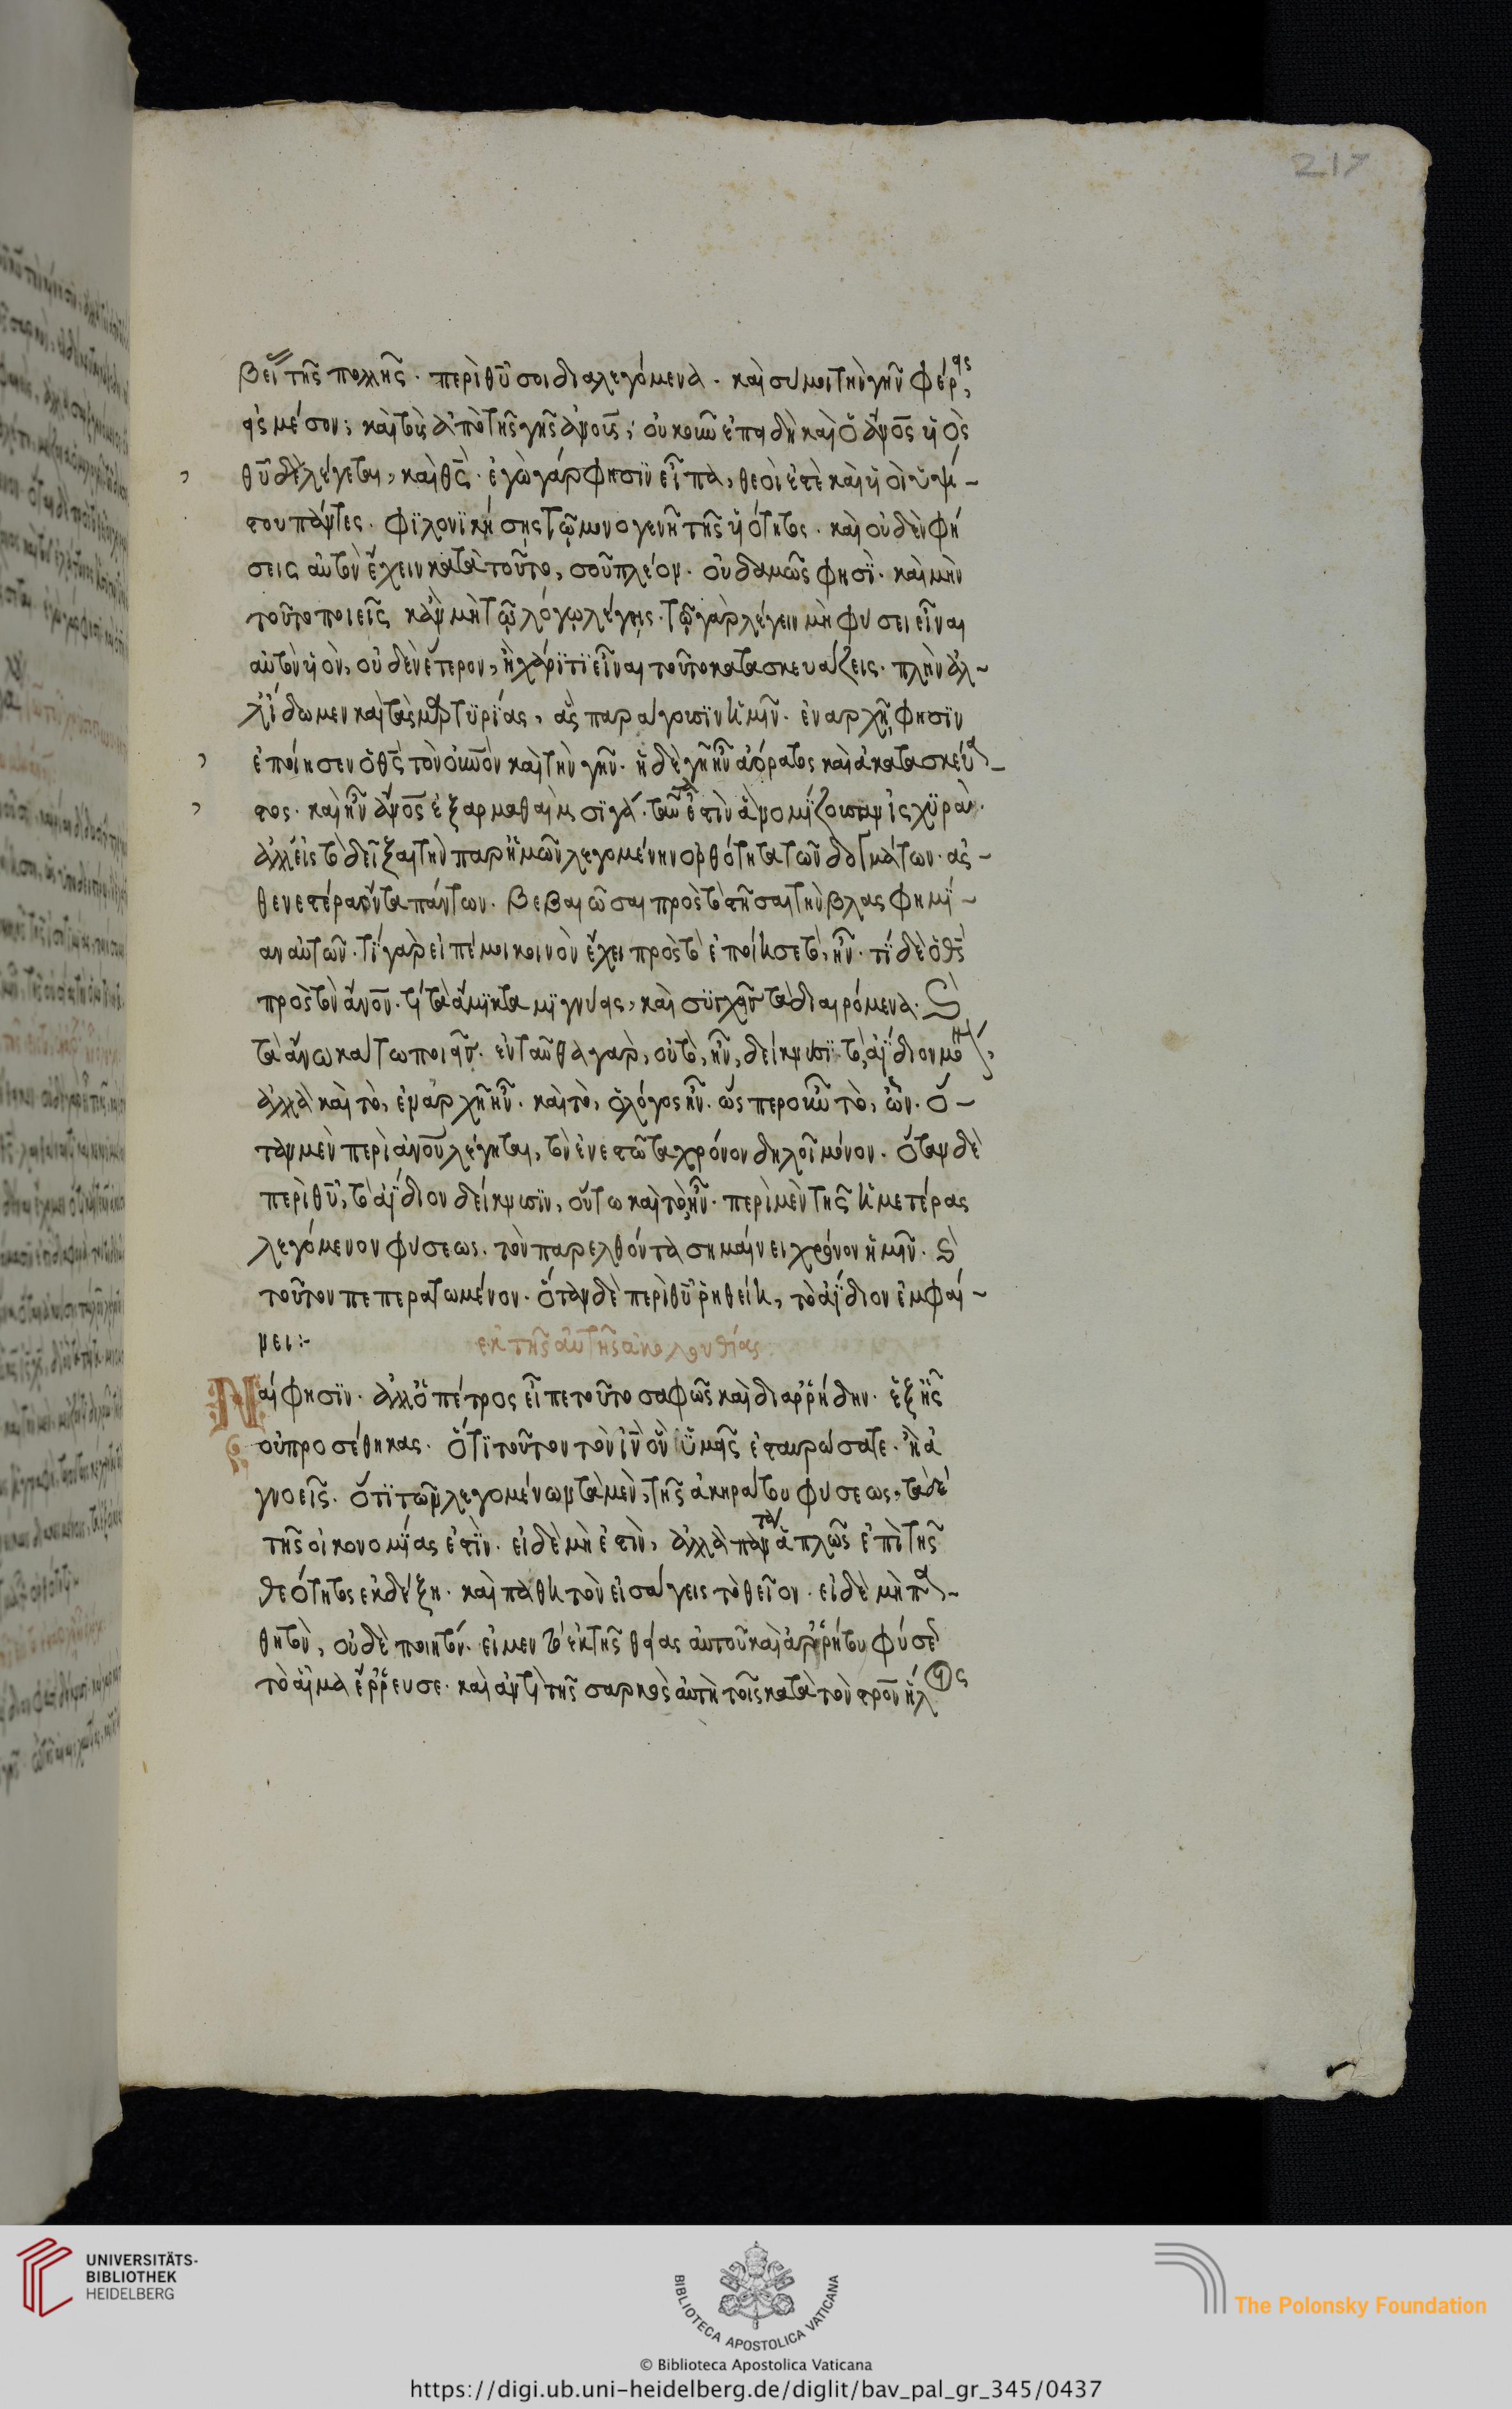 217
βείας τῆς πολλῆς. περὶ θῦ σοι διαλεγόμενα. καὶ σύ μοι τὴν γῆν φέρεις
εἰς μέσον; καὶ τοὺς ἀπὸ τῆς γῆς ἀνους; οὐκοῦν ἐπειδὴ καὶ ὁ ἄνος ὑιὸς
θῦ δὲ λέγεται, καὶ θς. ἐγὼ γάρ φησϊν εἶπα, θεοί ἐστὲ καὶ ὑιοὶ ὑψί-
στου πάντες. φϊλονϊκήσης τῷ μονογενῆ τῆς ὑιότητος. καὶ οὐδὲν φή
σεις αὐτὸν ἔχειν κατὰ τοῦτο, σοῦ πλέον. οὐδαμῶς φησί. καὶ μὴν
τοῦτο ποιεῖς κἂν μὴ τῷ λόγῳ λέγῃς. τῷ γὰρ λέγειν μὴ φύσει εἶναι
αὐτὸν ὑιὸν, οὐδὲν ἕτερον, ἢ χάρϊτϊ εἶναι τοῦτο κατασκευάζεις. πλὴν ἀλ-
λ' ἴδωμεν καὶ τὰς μαρτϋρίας, ἃς παράγουσϊν ἡμῖν. ἐν ἀρχῇ φησϊν
ἐποίησεν ὁ θς τὸν οὐνον καὶ τὴν γῆν. ἡ δὲ γῆ ἦν ἀόρατος καὶ ἀκατασκεύα-
στος. καὶ ἦν ἄνος ἐξ ἀρμαθαὶμ σϊγά. ταῦτά ἐστιν ἃ νομίζουσιν ἰσχϋρά.
ἀλλ' εἰς τὸ δεῖξαι τὴν παρ' ἡμῶν λεγομένην ὀρθότητα τῶν δογμάτων. ἀσ-
θενέστερα ὄντα πάντων. βεβαιῶσαι πρὸς τὸ στῆσαι τὴν βλασφημί-
αν αὐτῶν. τί γὰρ εἰπέ μοι κοινὸν ἔχει πρὸς τὸ ἐποίησε τὸ, ἦν. τί δὲ ὁ θς
πρὸς τὸν ἄνον. τί τὰ ἄμϊκτα μϊγνύεις, καὶ συγχεῖς τὰ διαιρόμενα. καὶ
τὰ ἄνω κάτω ποιεῖς. ἐνταῦθα γὰρ, οὐ τὸ, ἦν, δείκνυσι τὸ ἀΐδιον μόνον,
ἀλλὰ καὶ τὸ, ἐν ἀρχῇ ἦν. καὶ τὸ, ὁ λόγος ἦν. ὥσπερ οὖν τὸ, ὢν. ὅ-
ταν μὲν περὶ ἀνου λέγηται, τὸν ἐνεστῶτα χρόνον δηλοῖ μόνον. ὅταν δὲ
περὶ θῦ, τὸ ἀΐδιον δείκνυσϊν, οὕτω καὶ τὸ, ἦν. περὶ μὲν τῆς ἡμετέρας
λεγόμενον φύσεως. τὸν παρελθόντα σημαίνει χρόνον ἡμῖν. καὶ
τοῦτον πεπερατωμένον. ὅταν δὲ περὶ θῦ ῥηθείη, τὸ ἀΐδιον ἐμφαί-
νει:-
ἐκ τῆς αὐτῆς ἀκολουθίας.
Ναί φησϊν. ἀλλ' ὁ πέτρος εἶπε τοῦτο σαφῶς καὶ διαρρήδην. ἑξῆς
οὐ προσέθηκας. ὅτϊ τοῦτον τὸν ἰν ὃν ὑμεῖς ἐσταυρώσατε. ἢ ἀ
γνοεῖς. ὅτϊ τῶν λεγομένων τὰ μὲν, τῆς ἀκηράτου φύσεως, τὰ δὲ
τῆς οἰκονομίας ἐστϊν. εἰ δὲ μὴ ἐστιν, ἀλλὰ πάντα ἁπλῶς ἐπὶ τῆς
θεότητος ἐκδέξη. καὶ παθητὸν εἰσάγεις τὸ θεῖον. εἰ δὲ μὴ πα-
θητὸν, οὐδὲ ποιητόν. εἰ μεν τὸ ἐκ τῆς θείας αὐτοῦ καὶ ἀρρήτου φύσεως
τὸ αἷμα ἔρρευσε. καὶ ἀντὶ τῆς σαρκὸς αὐτὴ τοῖς κατὰ τὸν στρον ἥλοις
UNIVERSITÄTS-
BIBLIOTHEK
HEIDELBERG
BIBLIOTECA APOSTOLICA VATICANA
The Polonsky Foundation
© Biblioteca Apostolica Vaticana
https://digi.ub.uni-heidelberg.de/diglit/bav_pal_gr_345/0437